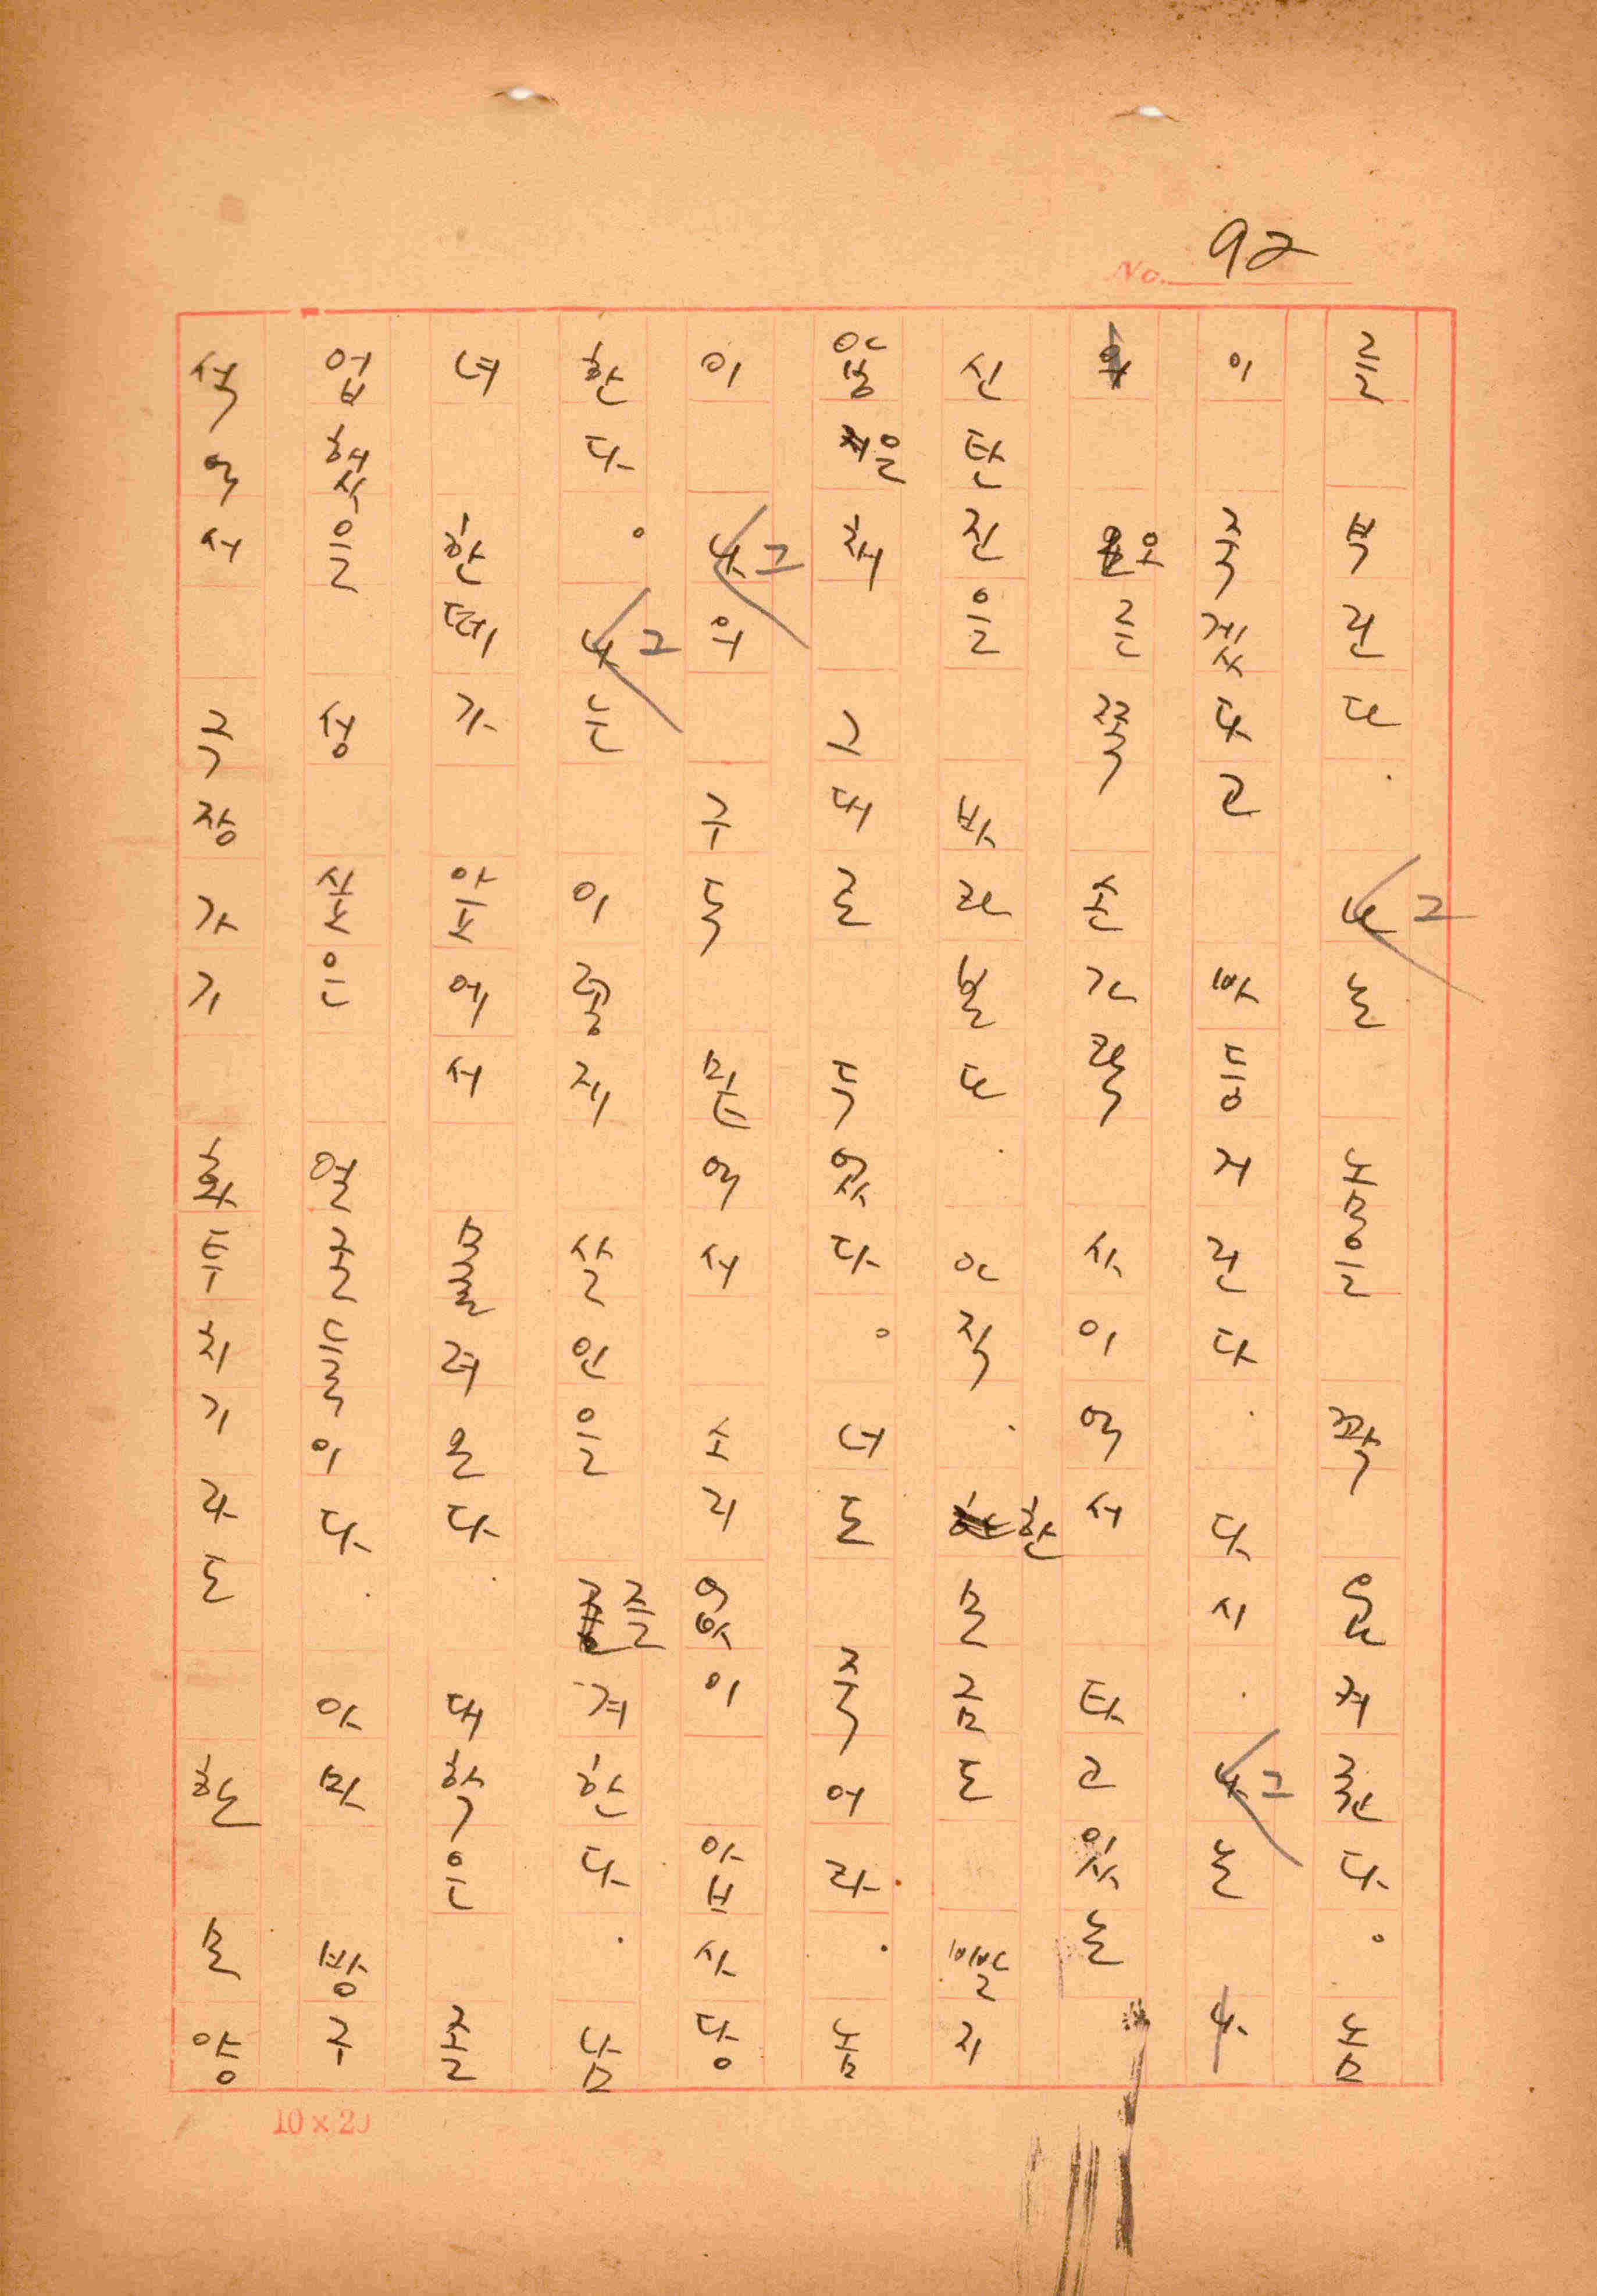 No. 92
를 부린다. 그는 놈을 꽉 움켜쥔다. 놈
이 죽겠다고 바둥거린다. 다시. 그는
오른쪽 손가락 사이에서 타고 있는
신탄진을 바라본다. 아직. 한 모금도 빨지
않은 채 그대로 두었다. 너도 죽어라. 놈
이 그의 구두 밑에서. 소리 없이 압사당
한다. 그는 이렇게 살인을 즐겨한다. 남
녀 한떼가 앞에서 몰려온다. 대학은 졸
업했을 성 싶은 얼굴들이다. 아마 방구
석에서 극장가기 화투치기라도 한 모양
10×20